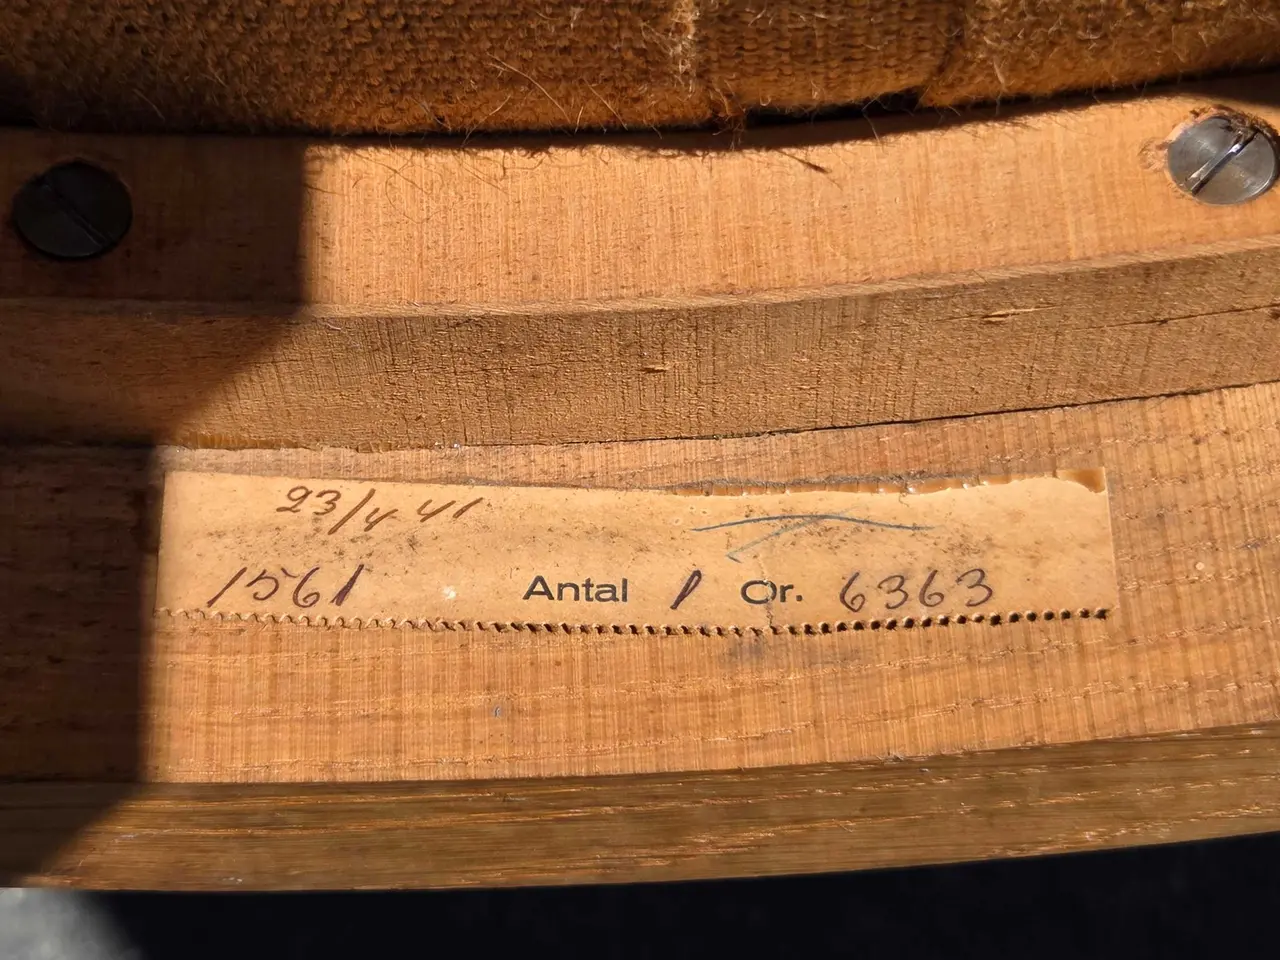 23/4 41
1561 Antal 1 Or. 6363